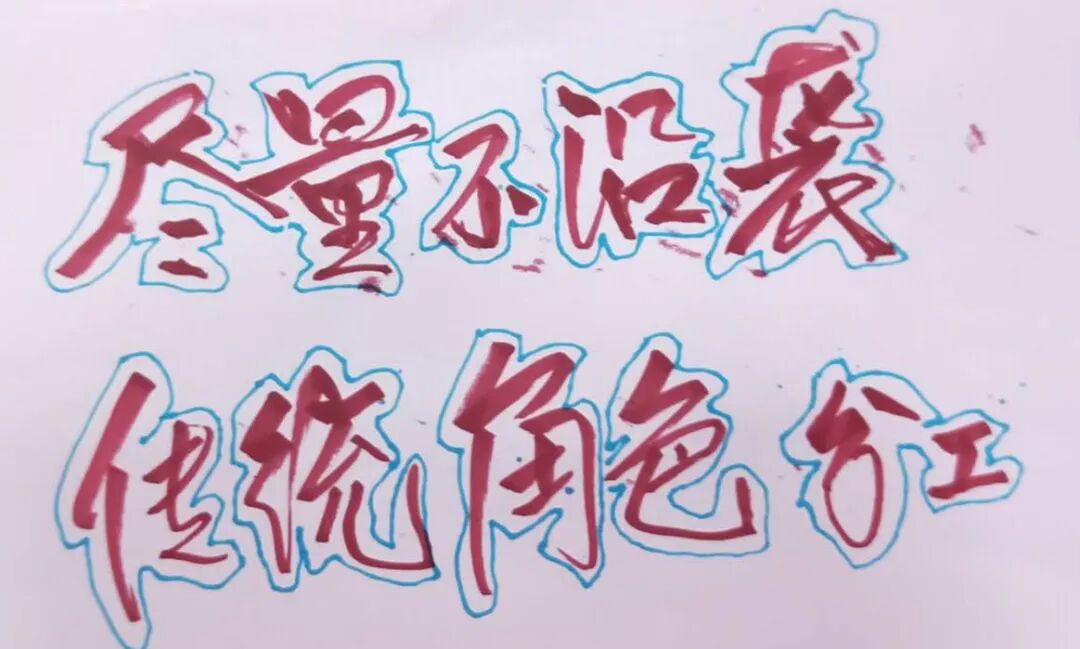 尽量不沿袭
传统角色分工